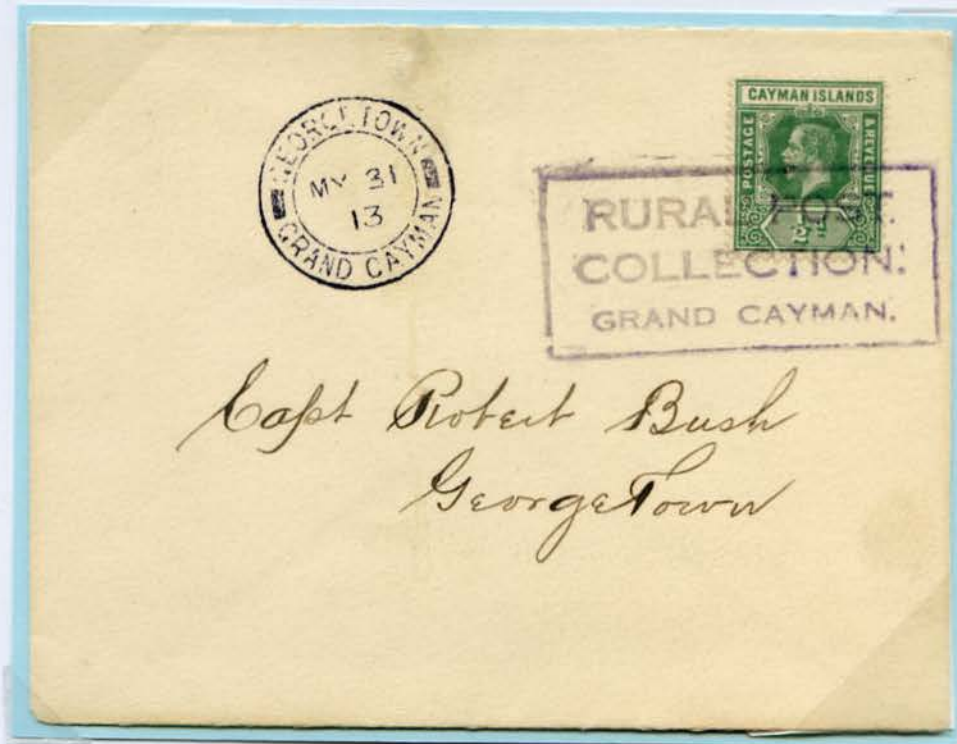 GEORGETOWN
MY 31
13
GRAND CAYMAN
CAYMAN ISLANDS
POSTAGE
& REVENUE
RURAL POST.
COLLECTION.
GRAND CAYMAN.
Capt Robert Bush
GeorgeTown